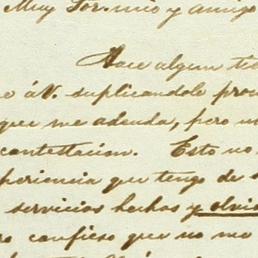 Muy Sor. mio y amigo
Hace algun tie
á V. suplicandole pron
que me adeuda, pero n
contestacion. Esto no
periencia que tengo de
servicios hechos y olvid
confieso que no me